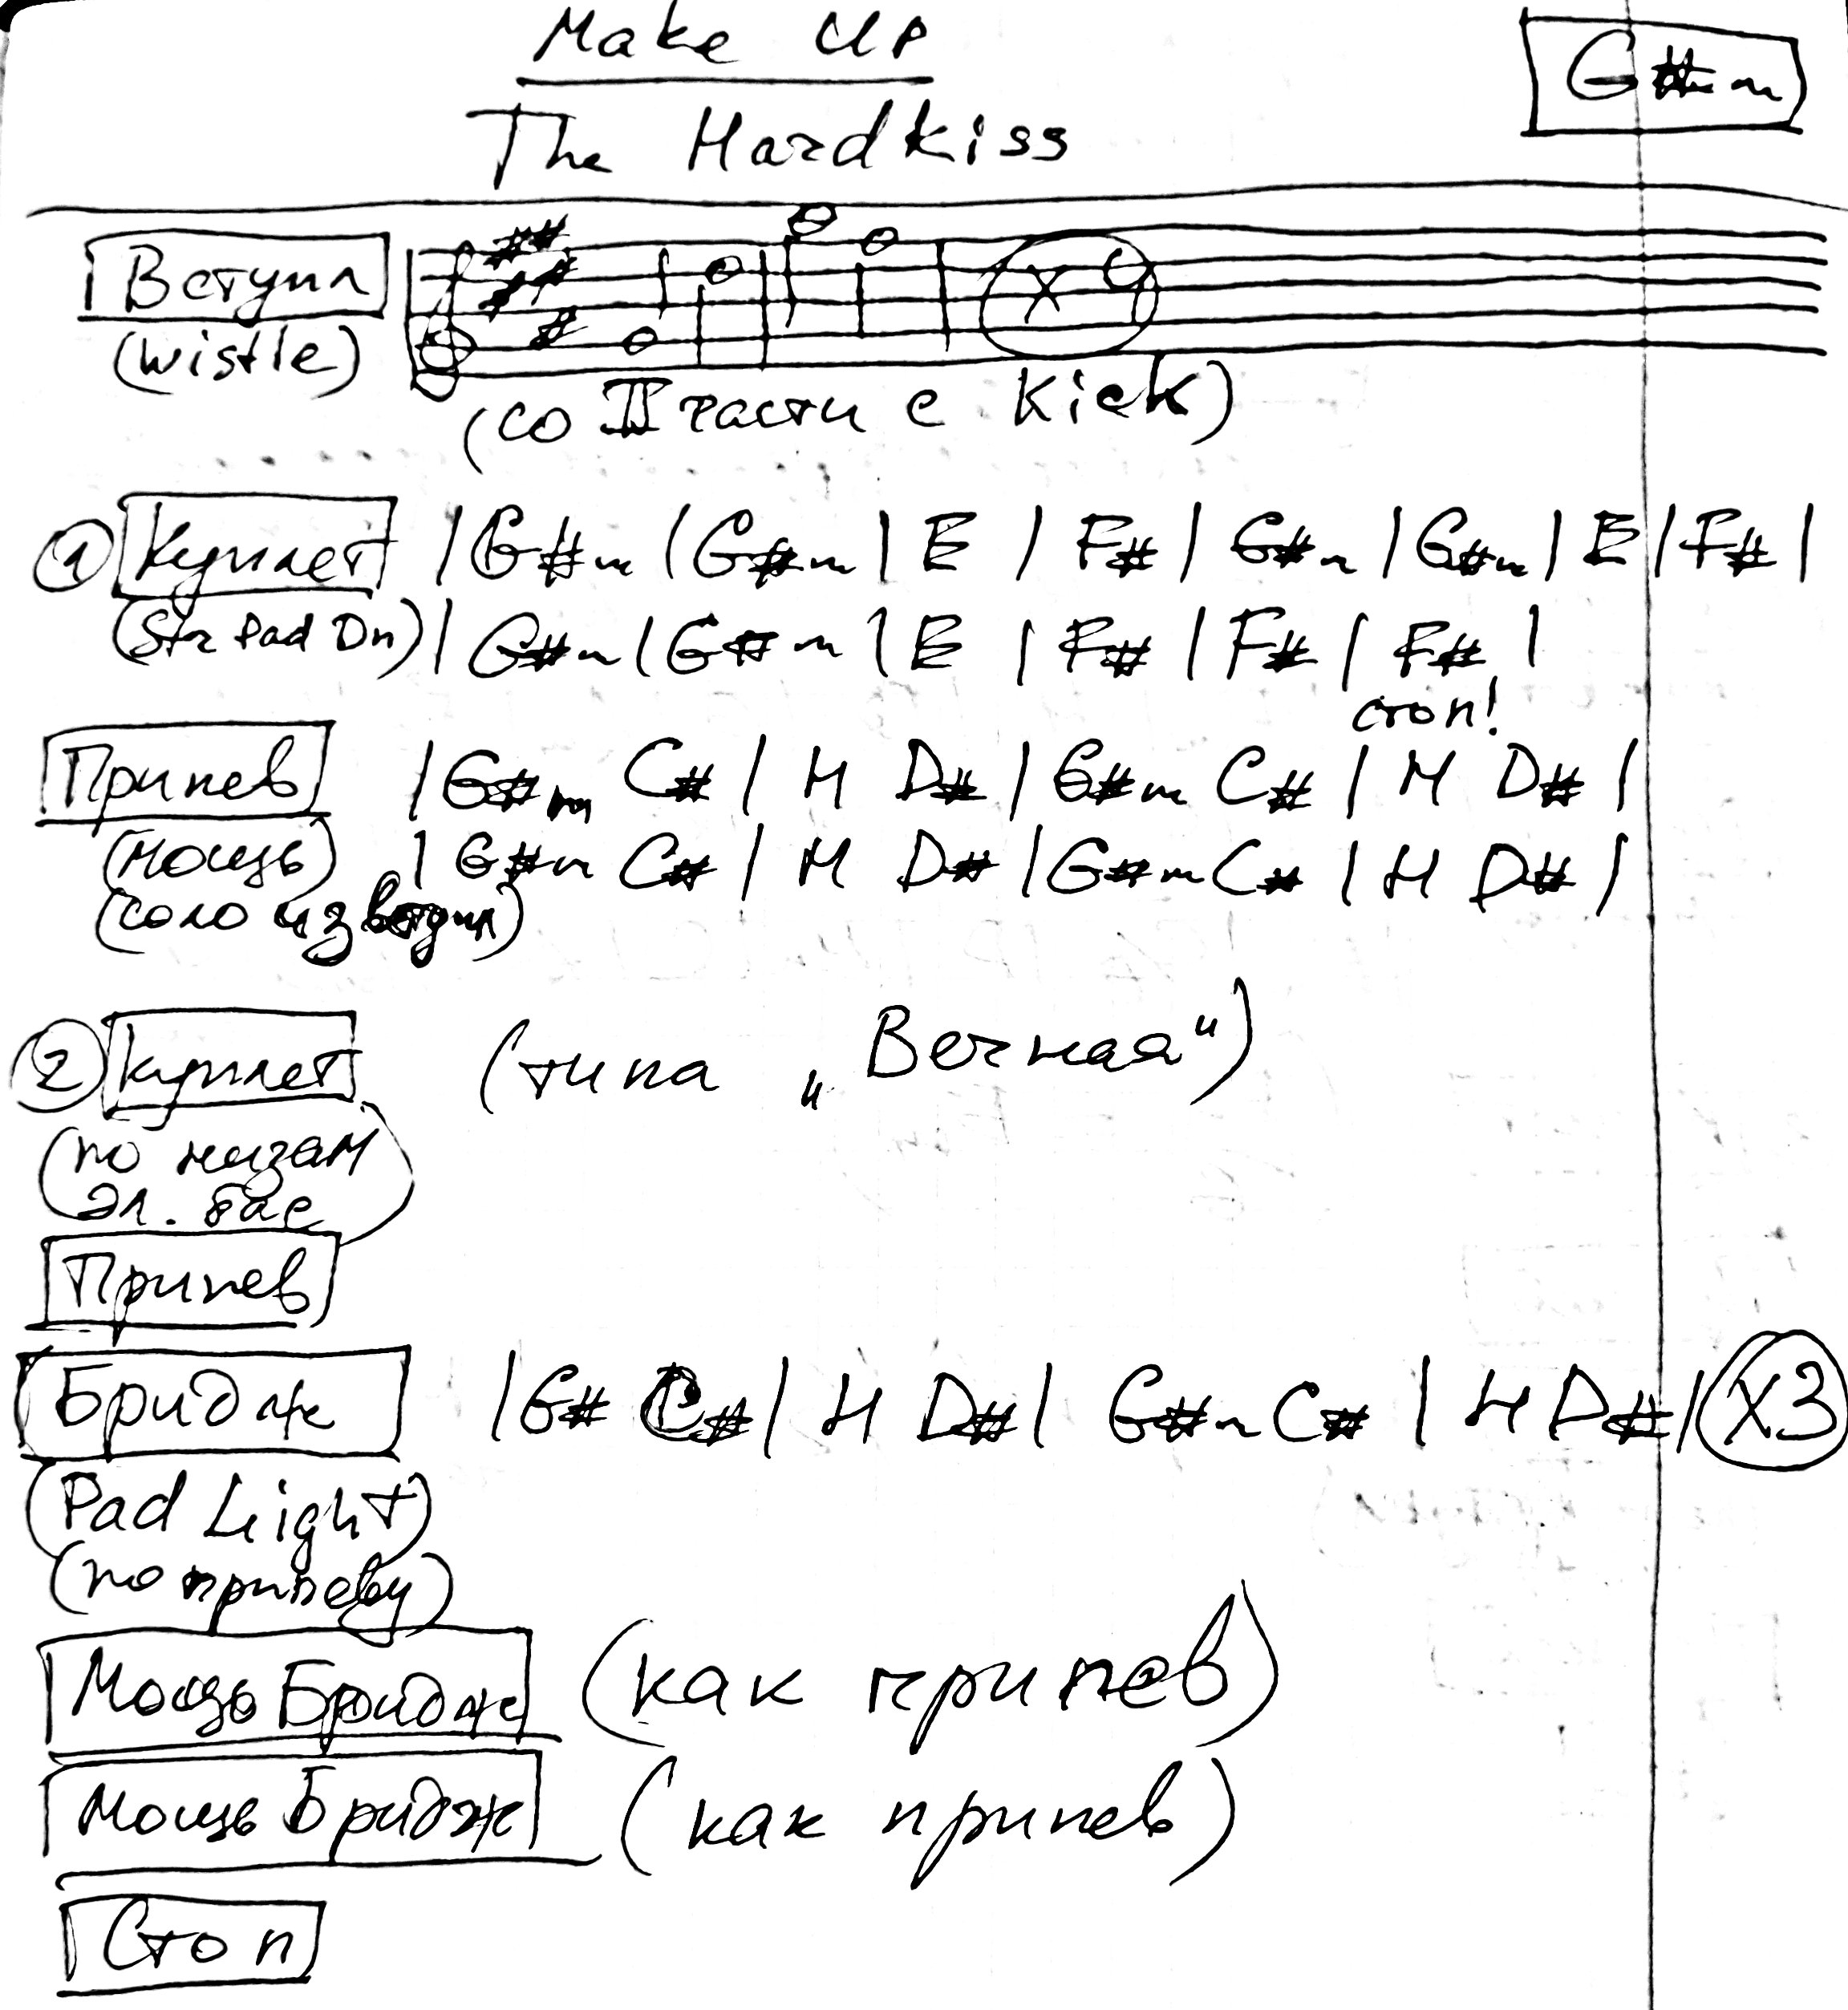 Make Up
G#m
The Hardkiss
Вступл
(wistle)
(со II части с Kick)
1 Куплет |G#m|G#m|E|F#|G#m|G#m|E|F#|
(Str Pad Dn)|G#m|G#m|E|F#|F#|F#|
стоп!
Припев |G#m C#|H D#|G#m C#|H D#|
(мощь) |G#m C#|H D#|G#m C#|H D#|
(соло из вступл)
2 Куплет (типа „Вечная“)
(по низам
эл. бас)
Припев
Бридж |G# C#|H D#|G#m C#|H D#| x3
(Pad Light)
(по припеву)
Мощь Бридж (как припев)
Мощь Бридж (как припев)
Стоп